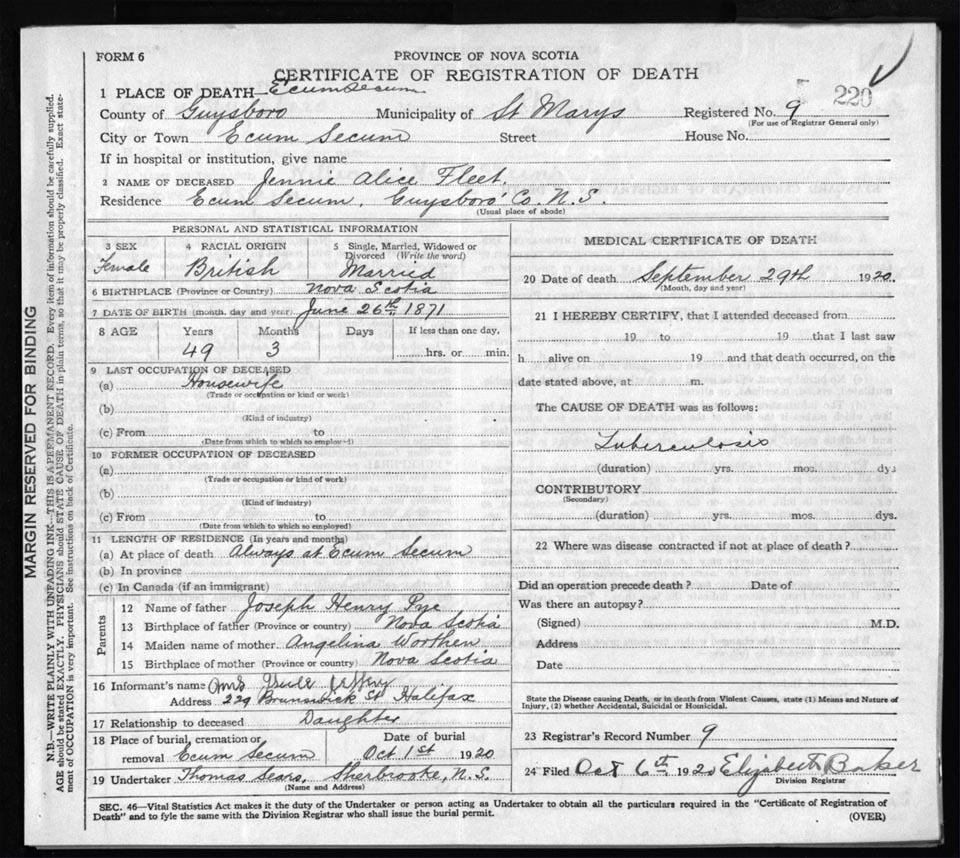 FORM 6
PROVINCE OF NOVA SCOTIA
CERTIFICATE OF REGISTRATION OF DEATH
220
1 PLACE OF DEATH—Ecum Secum
County of Guysboro Municipality of St Marys Registered No. 9
(For use of Registrar General only)
City or Town Ecum Secum Street House No.
If in hospital or institution, give name
2 NAME OF DECEASED Jennie Alice Fleet.
Residence Ecum Secum, Guysboro' Co. N.S.
(Usual place of abode)
PERSONAL AND STATISTICAL INFORMATION
3 SEX 4 RACIAL ORIGIN 5 Single, Married, Widowed or Divorced (Write the word)
Female British Married
6 BIRTHPLACE (Province or Country) Nova Scotia
7 DATE OF BIRTH (month, day and year) June 26th 1871
8 AGE Years Months Days If less than one day,
49 3 hrs. or min.
9 LAST OCCUPATION OF DECEASED
(a) Housewife
(Trade or occupation or kind or work)
(b)
(Kind of industry)
(c) From to
(Date from which to which so employed)
10 FORMER OCCUPATION OF DECEASED
(a)
(Trade or occupation or kind of work)
(b)
(Kind of industry)
(c) From to
(Date from which to which so employed)
11 LENGTH OF RESIDENCE (In years and months)
(a) At place of death Always at Ecum Secum
(b) In province
(c) In Canada (if an immigrant)
Parents
12 Name of father Joseph Henry Pye
13 Birthplace of father (Province or country) Nova Scotia
14 Maiden name of mother Angelina Worthen
15 Birthplace of mother (Province or country) Nova Scotia
16 Informant's name Mrs Jeffery
Address 229 Brunswick St Halifax
17 Relationship to deceased Daughter
18 Place of burial, cremation or removal Ecum Secum Date of burial Oct 1st 1920
19 Undertaker Thomas Sears, Sherbrooke, N.S.
(Name and Address)
MEDICAL CERTIFICATE OF DEATH
20 Date of death September 29th 1920.
(Month, day and year)
21 I HEREBY CERTIFY, that I attended deceased from
19 to 19 that I last saw
h alive on 19 and that death occurred, on the
date stated above, at m.
The CAUSE OF DEATH was as follows:
Tuberculosis
(duration) yrs. mos. dys
CONTRIBUTORY
(Secondary)
(duration) yrs. mos. dys.
22 Where was disease contracted if not at place of death?
Did an operation precede death? Date of
Was there an autopsy?
(Signed) M.D.
Address
Date
State the Disease causing Death, or in death from Violent Causes, state (1) Means and Nature of
Injury, (2) whether Accidental, Suicidal or Homicidal.
23 Registrar's Record Number 9
24 Filed Oct 6th 1920 Elizabeth Baker
Division Registrar
SEC. 46—Vital Statistics Act makes it the duty of the Undertaker or person acting as Undertaker to obtain all the particulars required in the "Certificate of Registration of
Death" and to fyle the same with the Division Registrar who shall issue the burial permit. (OVER)
MARGIN RESERVED FOR BINDING
N.B.—WRITE PLAINLY WITH UNFADING INK—THIS IS A PERMANENT RECORD. Every item of information should be carefully supplied.
AGE should be stated EXACTLY. PHYSICIANS should STATE CAUSE OF DEATH in plain terms, so that it may be properly classified. Exact state-
ment of OCCUPATION is very important. See instructions on back of Certificate.